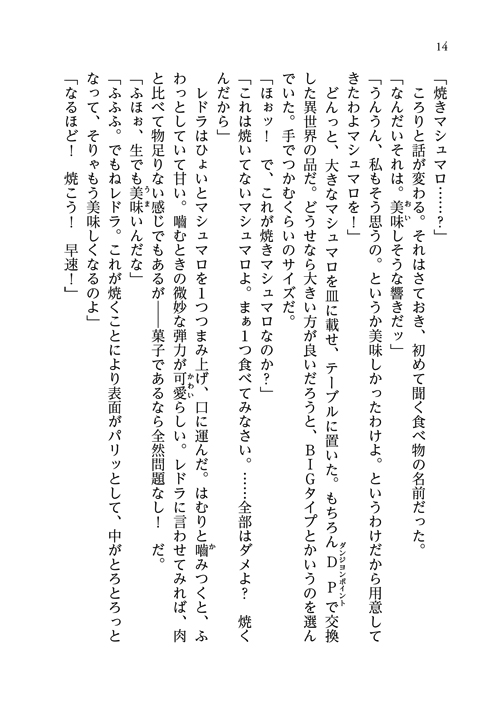 14
「焼きマシュマロ……？」
　ころりと話が変わる。それはさておき、初めて聞く食べ物の名前だった。
「なんだいそれは。美味しそうな響きだッ」
「うんうん、私もそう思うの。というか美味しかったわけよ。というわけだから用意して
きたわよマシュマロを！」
　どんっと、大きなマシュマロを皿に載せ、テーブルに置いた。もちろんＤＰで交換
した異世界の品だ。どうせなら大きい方が良いだろうと、ＢＩＧタイプとかいうのを選ん
でいた。手でつかむくらいのサイズだ。
「ほぉッ！　で、これが焼きマシュマロなのか？」
「これは焼いてないマシュマロよ。まぁ１つ食べてみなさい。……全部はダメよ？　焼く
んだから」
　レドラはひょいとマシュマロを１つつまみ上げ、口に運んだ。はむりと嚙みつくと、ふ
わっとしていて甘い。嚙むときの微妙な弾力が可愛らしい。レドラに言わせてみれば、肉
と比べて物足りない感じでもあるが――菓子であるなら全然問題なし！　だ。
「ふほぉ、生でも美味いんだな」
「ふふふ。でもねレドラ。これが焼くことにより表面がパリッとして、中がとろとろっと
なって、そりゃもう美味しくなるのよ」
「なるほど！　焼こう！　早速！」